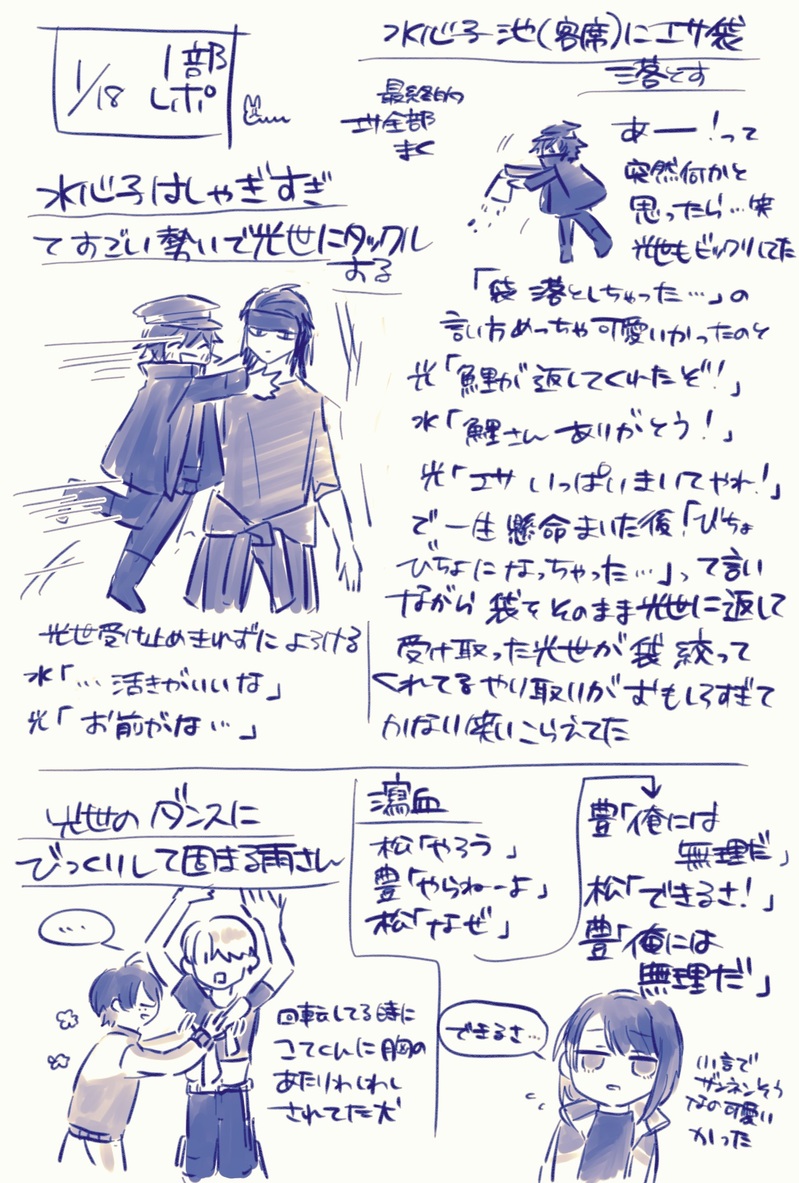 1/18 1部
レポ
水心子 池(客席)にエサ袋
落とす
最終的
エサ全部
まく
あーー!って
突然何かと
思ったら…笑
光世もビックリしてた
「袋 落としちゃった…」の
言い方めっちゃ可愛いかったのと
光「鯉が返してくれたぞ!」
水「鯉さん ありがとう!」
光「エサ いっぱいまいてやれ!」
で一生懸命まいた後「びちょ
びちょになっちゃった…」って言い
ながら袋をそのまま光世に返して
受け取った光世が袋絞って
くれてるやり取りがおもしろすぎて
かない笑いこらえてた
水心子はしゃぎすぎ
てすごい勢いで光世にタックル
する
光世受け止めきれずによろける
水「…活きがいいな」
光「お前がな…」
光世のダンスに
びっくりして固まる雨さん
…
回転してる時に
こてくんに胸の
あたりわしわし
されてた
瀉血
松「やろう」
豊「やらねーよ」
松「なぜ」
豊「俺には
無理だ」
松「できるさ!」
豊「俺には
無理だ」
できるさ…
小言で
ザンネンそう
なの可愛い
かった